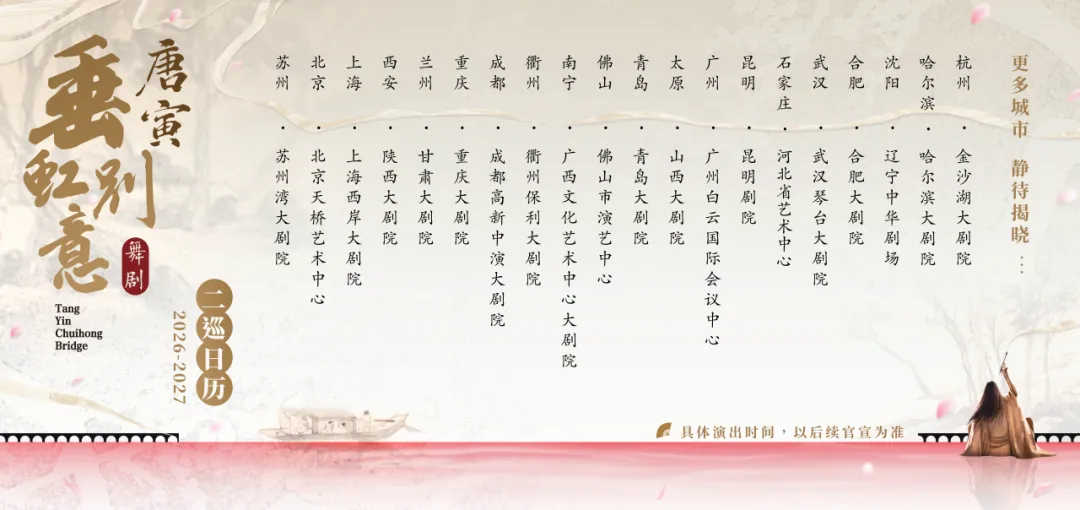 唐寅
垂虹别意
舞剧
Tang
Yin
Chuihong
Bridge
二巡日历
2026-2027
苏州·苏州湾大剧院
北京·北京天桥艺术中心
上海·上海西岸大剧院
西安·陕西大剧院
兰州·甘肃大剧院
重庆·重庆大剧院
成都·成都高新中演大剧院
衢州·衢州保利大剧院
南宁·广西文化艺术中心大剧院
佛山·佛山市演艺中心
青岛·青岛大剧院
太原·山西大剧院
广州·广州白云国际会议中心
昆明·昆明剧院
石家庄·河北省艺术中心
武汉·武汉琴台大剧院
合肥·合肥大剧院
沈阳·辽宁中华剧场
哈尔滨·哈尔滨大剧院
杭州·金沙湖大剧院
更多城市 静待揭晓...
具体演出时间，以后续官宣为准